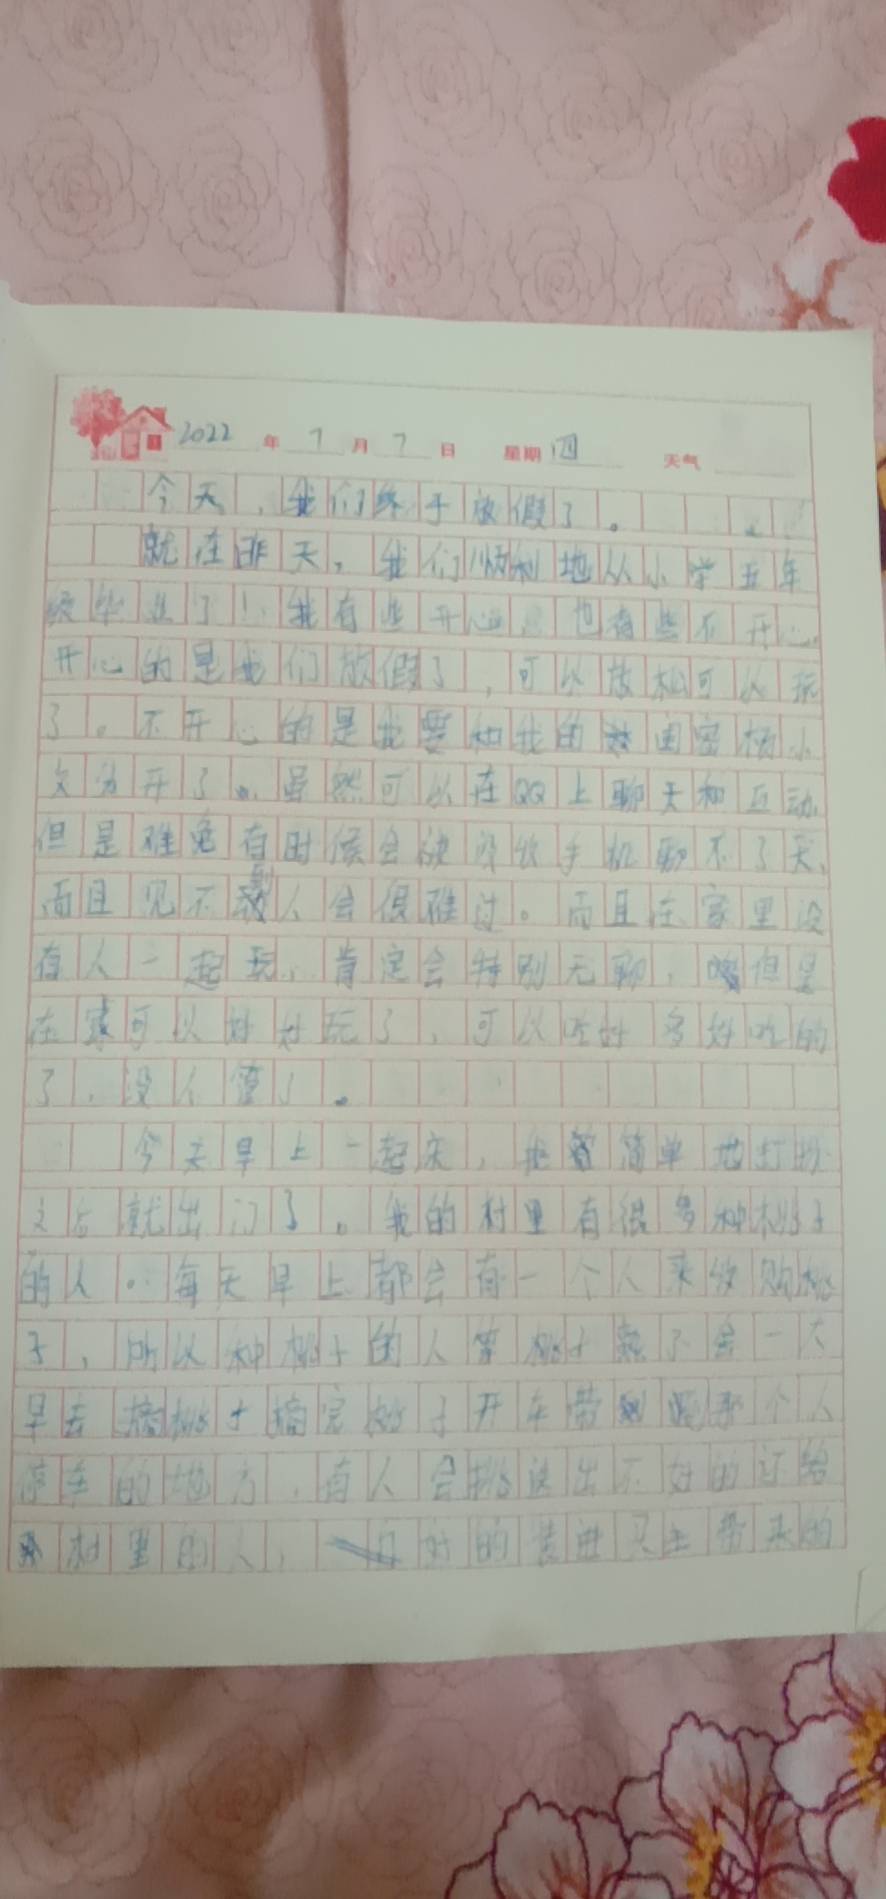 2022 年 7 月 7 日 星期 四 天气
今天，我们终于放假了。
就在昨天，我们顺利地从小学五年
级毕业了！我有些开心，也有些不开心。
开心的是我们放假了，可以放松可以玩
了。不开心的是我要和我的闺密杨小
文分开了。虽然可以在QQ上聊天和互动，
但是难免有时候会被没收手机聊不了天，
而且见不到人会很难过。而且在家里没
有人一起玩，肯定会特别无聊，但是
在家可以好好玩了，可以吃好多好吃的
了，没人管了。
今天早上一起床，我简单地打扮
之后就出门了。我的村里有很多种桃子
的人。每天早上都会有一个人来收购桃
子，所以种桃子的人等桃子熟了会一大
早去摘桃子摘完桃子开车带到那个人
停车的地方，有人会挑选出不好的还给
村里的人，好的装进买主带来的